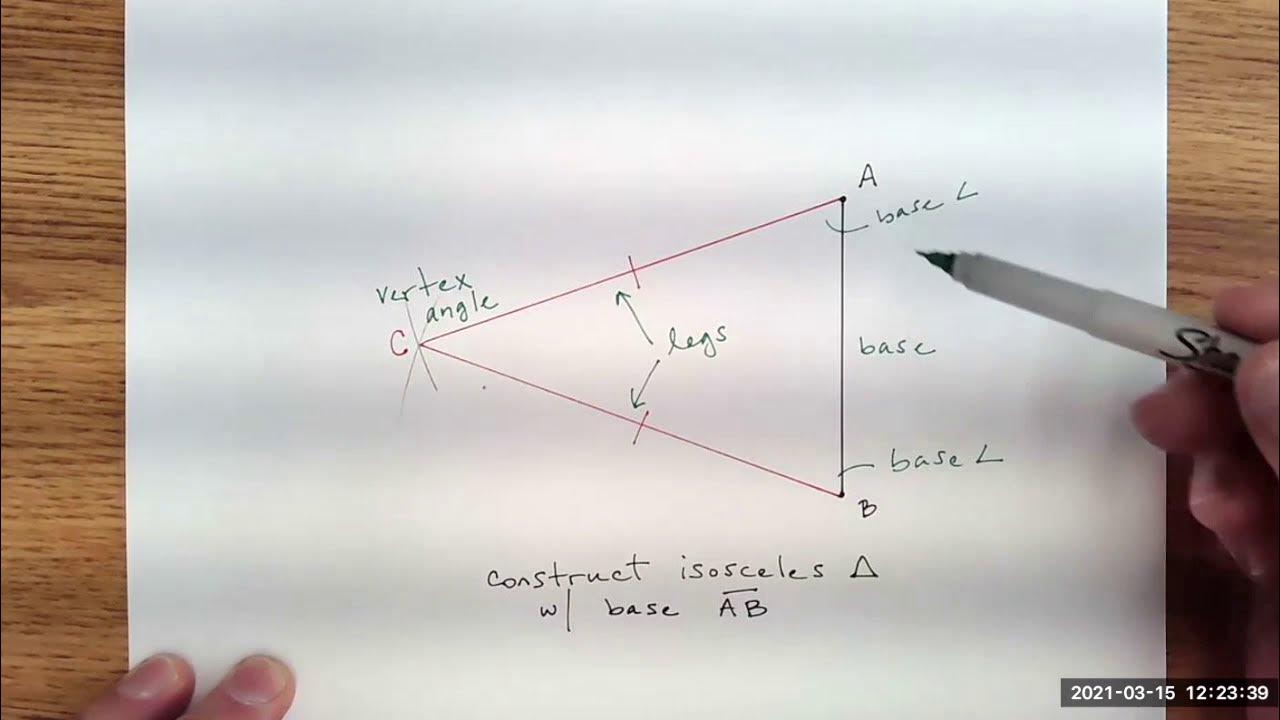 A
base ∠
vertex
angle
C
legs
base
base ∠
B
construct isosceles Δ
w/ base A̅B̅
2021-03-15 12:23:39